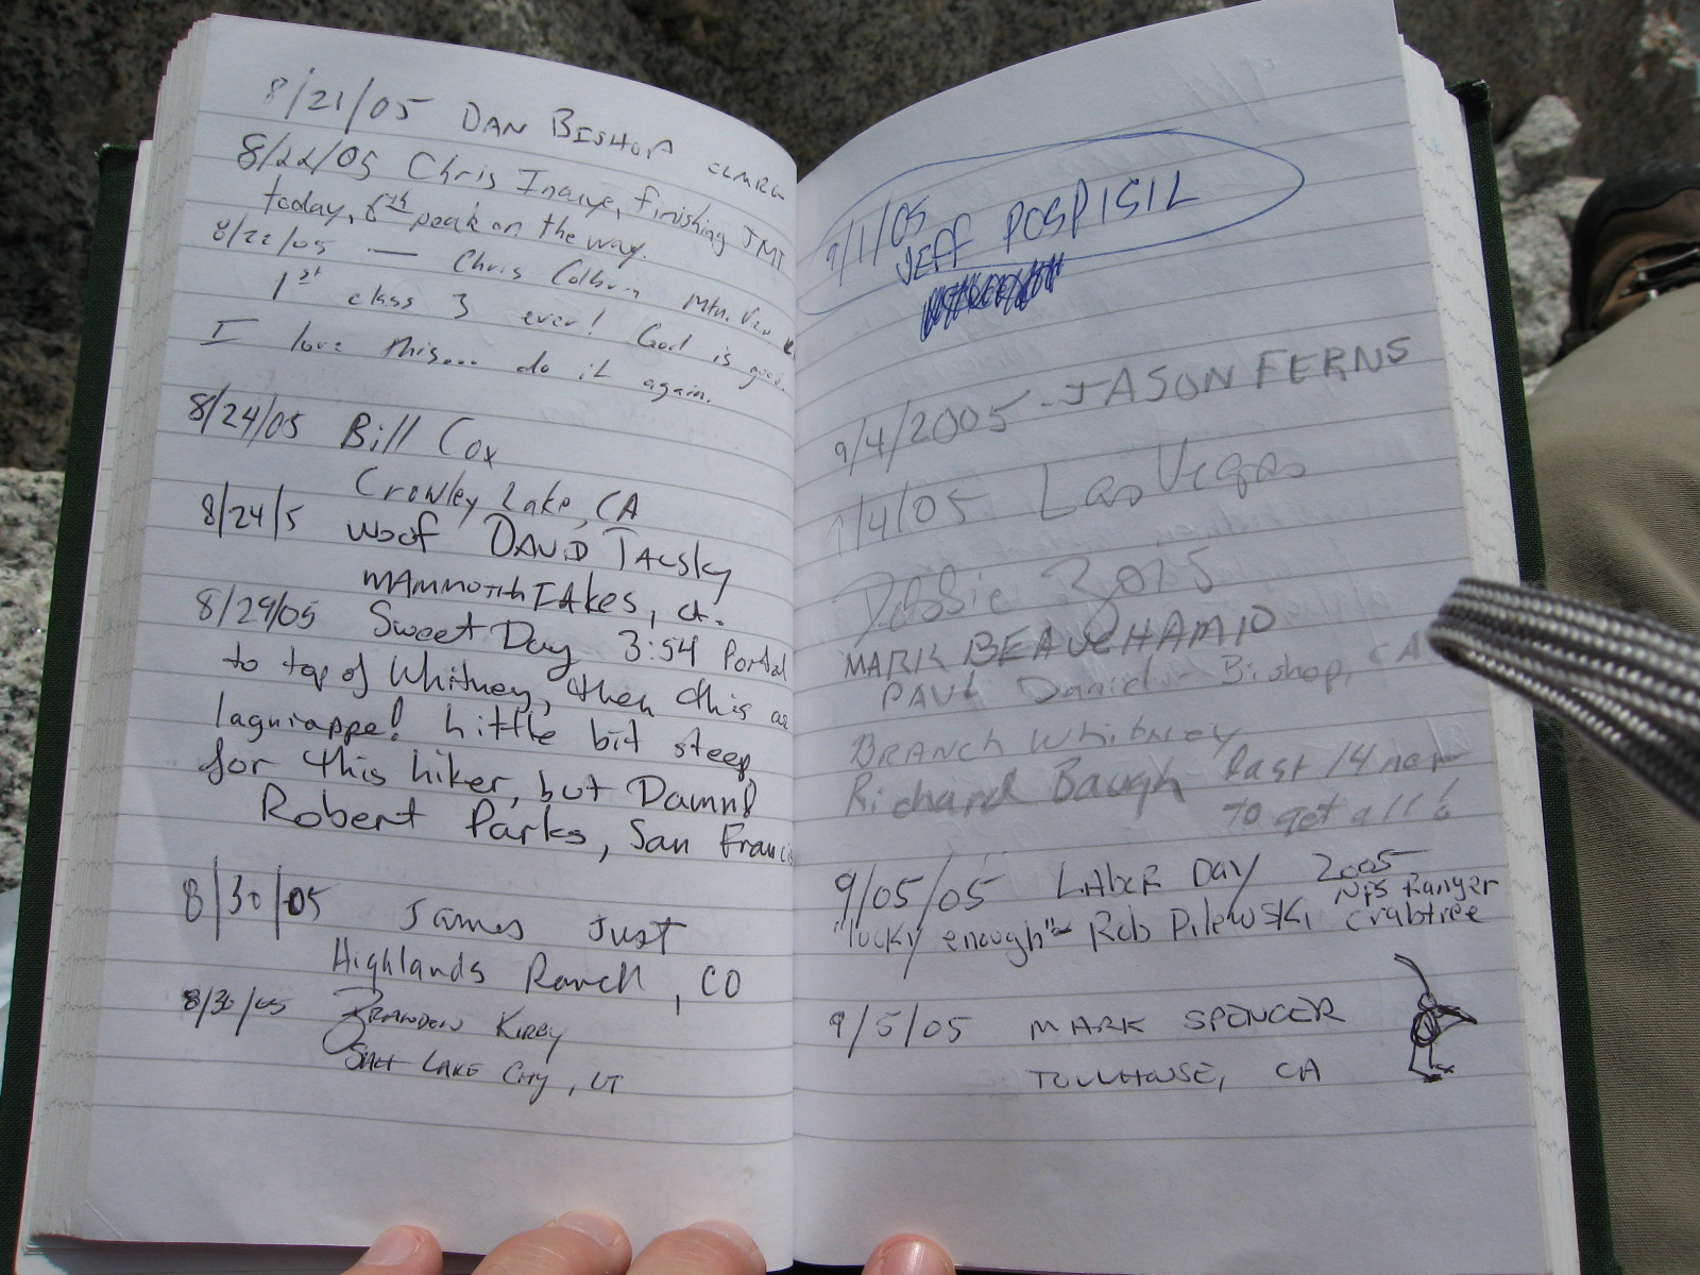 8/21/05 DAN BISHOP CLMRG
8/22/05 Chris Inaye, finishing JMT
today, 8th peak on the way.
8/22/05 — Chris Mtn. View
1st class 3 ever! God is good.
I love this... do it again.
8/24/05 Bill Cox
Crowley Lake, CA
8/24/5 woof DAVID
MAMMOTH LAKES, CA.
8/29/05 Sweet Day 3:54 Portal
to top of Whitney, then this as
lagniappe! Little bit steep
for this hiker, but Damn!
Robert Parks, San Franci
8/30/05 James Just
Highlands Ranch, CO
8/30/05 BRANDON KIRBY
SALT LAKE CITY, UT
9/1/05
JEFF POSPISIL
9/4/2005 - JASON FERNS
9/4/05 Las Vegas
Debbie
MARK BEAUCHAMP
PAUL Bishop, CA
BRANCH Whitney
Richard Baugh last 14 ner
to get all!
9/05/05 LABOR DAY 2005
"lucky enough" ~ Rob Pilewski NPS Ranger
Crabtree
9/5/05 MARK SPENCER
TOLLHOUSE, CA